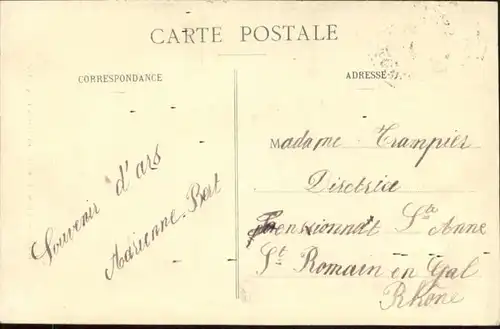 CARTE POSTALE
CORRESPONDANCE
ADRESSE
Souvenir d'ars
Adrienne Bert
Madame Tranpier
Directrice
Pensionnat Ste Anne
St Romain en Gal
Rhône